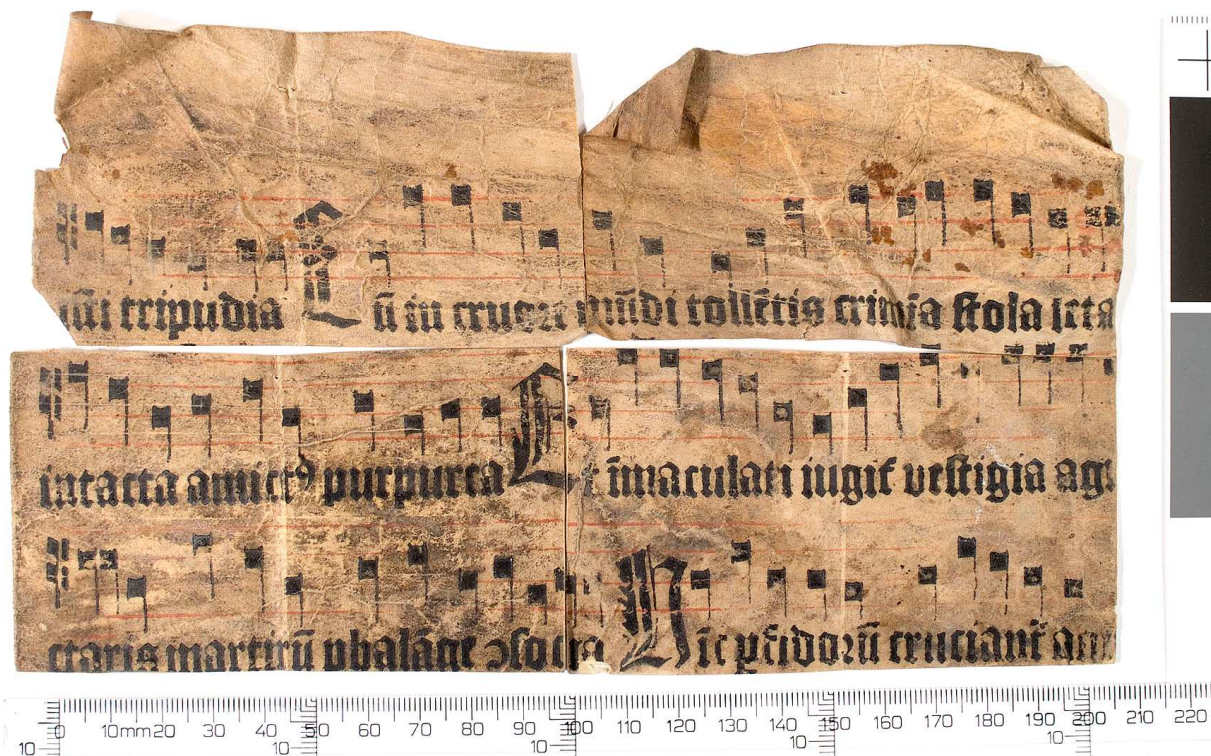 tripudia Cū in cruore mūdi tollētis crimīa stola
intacta amictꝰ purpurea Et īmaculati iugit̄ vestigia
martirū phalāge Nīc ꝑfidorū cruciant̄
0 10mm 20 30 40 50 60 70 80 90 100 110 120 130 140 150 160 170 180 190 200 210 220
10 10 10 10 10